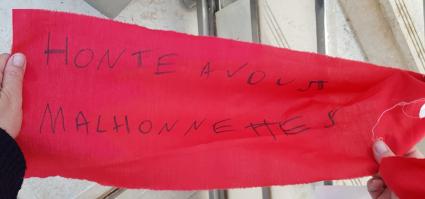 HONTE A VOUS
MALHONNETES